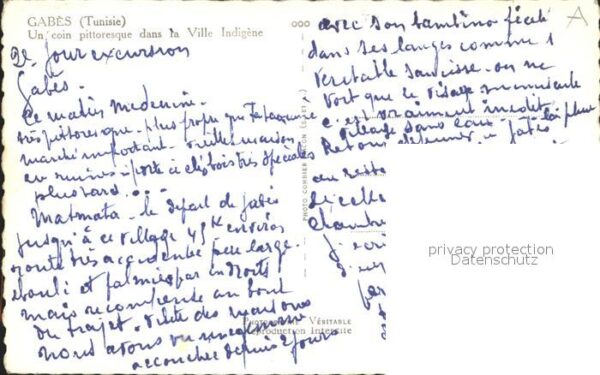 GABÈS (Tunisie)
Un coin pittoresque dans la Ville Indigène
2e jour excursion
Gabès.
Ce matin Medenine.
très pittoresque - plus propre que
marché important - vieille maison
en ruines - porte
plus tard...
Matmata - le départ de Gabès
jusqu'à ce village 45 km environ
route très accidentée peu large.
éboulis et palmiers par endroits
mais récompense au bout
du trajet. visite des maisons
nous avons vu une femme
accouchée depuis 2 jours
avec son bambino ficelé
dans ses langes comme 1
véritable saucisse. on ne
voit que le visage minuscule
c'est vraiment inédit.
village sans eau - la pluie
Retour déjeuner à Gabès
au resto
de celle
chambre
J'écri
d'un
par
PHOTO COMBIER MACON
PHOTOGRAPHIE VÉRITABLE
Reproduction Interdite
A
privacy protection
Datenschutz